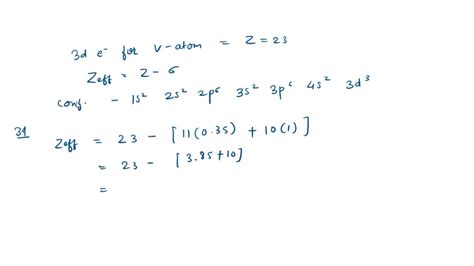 3d e⁻ for V-atom = Z = 23
Zeff = Z - σ
Conf. - 1s² 2s² 2p⁶ 3s² 3p⁶ 4s² 3d³
3d Zeff = 23 - [11(0.35) + 10(1)]
= 23 - [3.85+10]
=